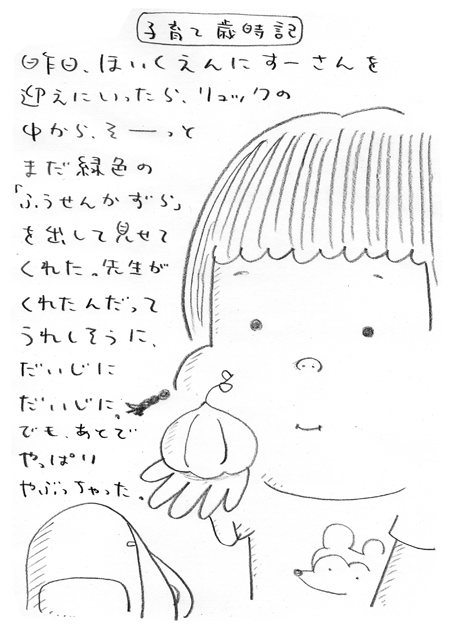 子育て歳時記
昨日、ほいくえんにすーさんを
迎えにいったら、リュックの
中から、そーっと
まだ緑色の
「ふうせんかずら」
を出して見せて
くれた。先生が
くれたんだって
うれしそうに、
だいじに
だいじに。
でも、あとで
やっぱり
やぶっちゃった。